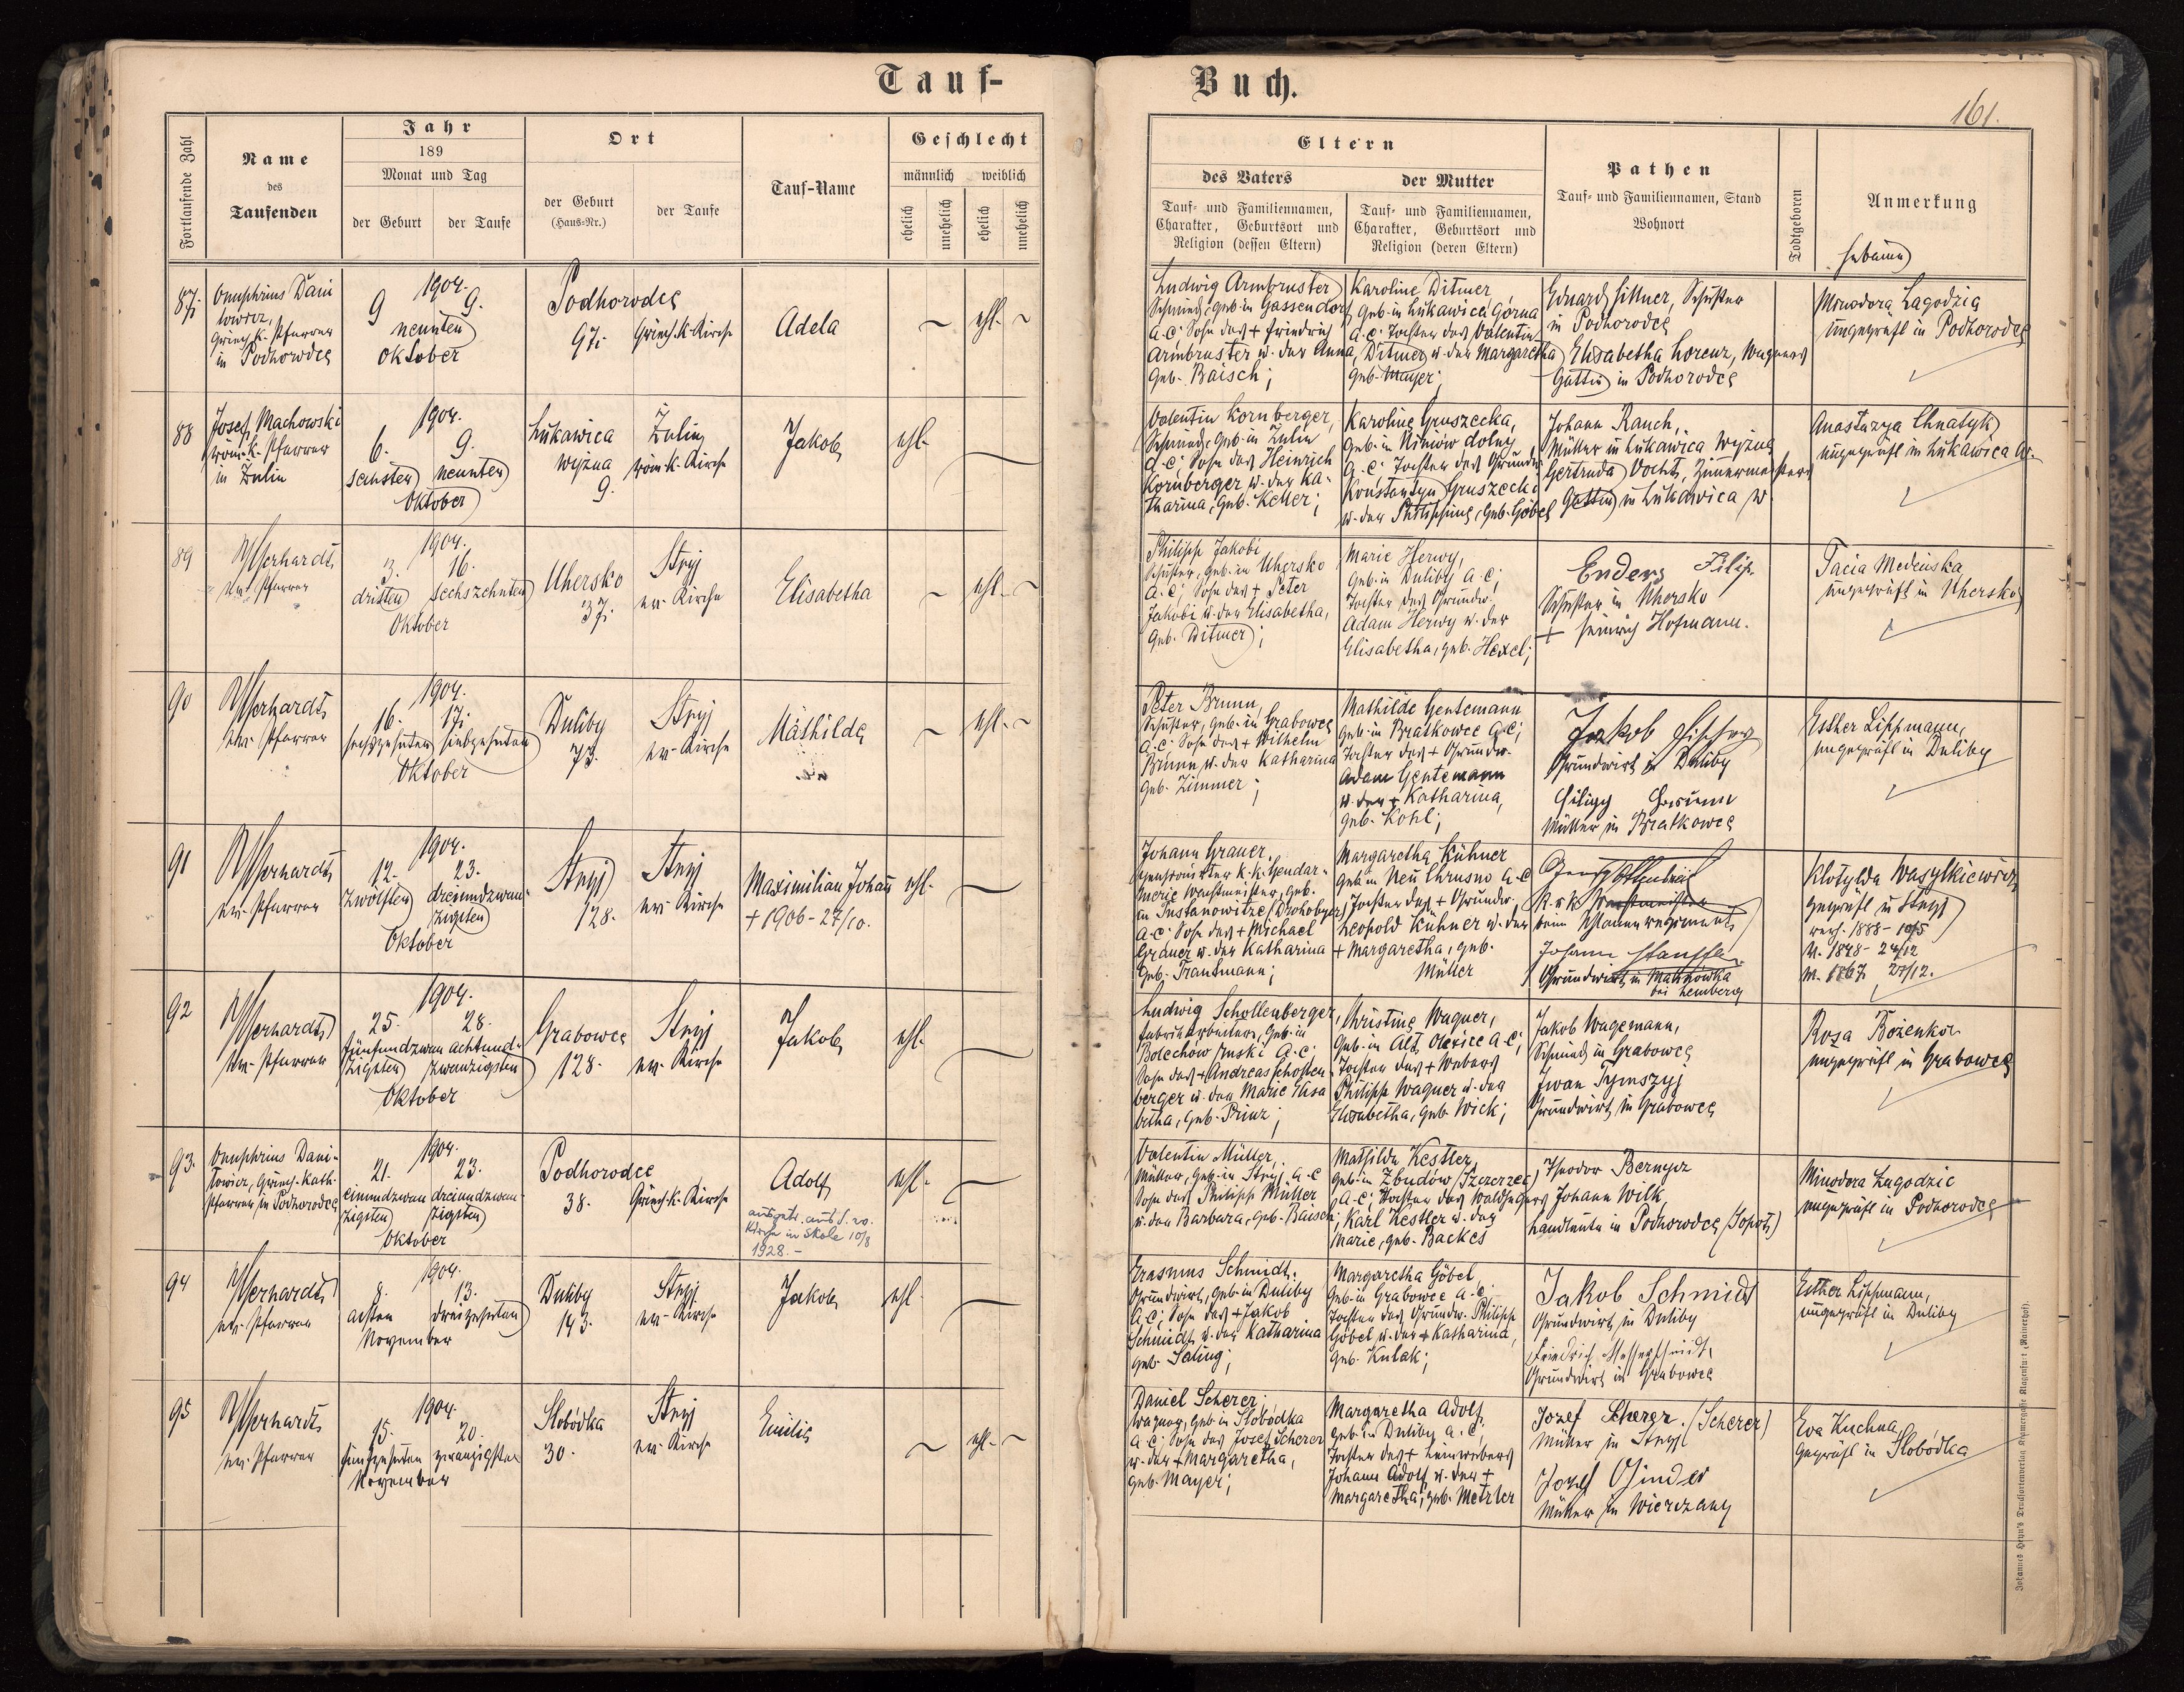 Tauf-
Buch.
161.
Fortlaufende Zahl
Name
des
Taufenden
Jahr
189
Monat und Tag
der Geburt
der Taufe
Ort
der Geburt
(Haus-Nr.)
der Taufe
Tauf-Name
Geschlecht
männlich
weiblich
ehelich
unehelich
ehelich
unehelich
Eltern
des Vaters
Tauf- und Familiennamen,
Charakter, Geburtsort und
Religion (dessen Eltern)
der Mutter
Tauf- und Familiennamen,
Charakter, Geburtsort und
Religion (deren Eltern)
Pathen
Tauf- und Familiennamen, Stand
Wohnort
Todtgeboren
Anmerkung
Hebamme
87.
Onuphrius Dani
lowicz,
Griech.-k. Pfarrer
in Podhorodce
1904.
9 9.
neunten
Oktober
Podhorodce
97. Griech. k. Kirche
Adela
ehl.
Ludwig Armbruster
Schmied, geb. in Gassendorf
A.C.; Sohn des + Friedrich
Armbruster u. der Anna,
geb. Baisch;
Karoline Ditmer
geb. in Lukawica Górna
A.C.; Tochter des Valentin
Ditmer u. der Margaretha
geb. Mayer;
Eduard Hittner, Schuster
in Podhorodce
Elisabetha Lorenz, Wagners
Gattin in Podhorodce
Monodora Lagodzia
ungeprüft in Podhorodce
88
Josef Machowski
röm. k. Pfarrer
in Zulin
1904.
6. 9.
sechsten neunten
Oktober
Lukawica
wyżna
9.
Zulin
röm. k. Kirche
Jakob
ehl.
Valentin Kornberger,
Schmied, geb. in Zulin
A.C.; Sohn des Heinrich
Kornberger u. der Ka-
tharina, geb. Keller;
Karoline Gruszecka,
geb. in Niniów dolny
A.C.; Tochter des Grundw.
Konstantyn Gruszecki
u. der Philippine, geb. Göbel
Johann Rauch,
Müller in Lukawica Wyżna
Gertruda Vocht, Zimmermeisters
Gattin in Lukawica w.
Anastazya Chnatyk
ungeprüft in Lukawica w.
89
Wserhardt,
ev. Pfarrer
1904.
3. 16.
dritten sechszehnten
Oktober
Uhersko
37.
Stryj
ev. Kirche
Elisabetha
ehl.
Philipp Jakobi
Schuster, geb. in Uhersko
A.C.; Sohn des + Peter
Jakobi u. der Elisabetha,
geb. Ditmer;
Marie Herwy,
geb. in Duliby A.C.;
Tochter des Grundw.
Adam Herwy u. der
Elisabetha, geb. Hexel;
Enders Filip.
Schuster in Uhersko
+ Heinrich Hofmann.
Tacia Medeinska
ungeprüft in Uhersko
90
Wserhardt,
ev. Pfarrer
1904.
16. 17.
sechzehnten siebzehnten
Oktober
Duliby
73.
Stryj
ev. Kirche
Mathilde
ehl.
Peter Brunn,
Schuster, geb. in Grabowce
A.C.; Sohn des + Wilhelm
Brunn u. der Katharina
geb. Zimmer;
Mathilde Gentemann
geb. in Bratkowce A.C.;
Tochter des + Grundw.
Adam Gentemann
u. der + Katharina,
geb. Kohl;
Jakob Fischer
Grundwirt in Duliby
Müller in Bratkowce
Esther Lippmann,
ungeprüft in Duliby
91
Wserhardt,
ev. Pfarrer
1904.
12. 23.
zwölften dreiundzwan-
zigsten
Oktober
Stryj
128.
Stryj
ev. Kirche
Maximilian Johann
+ 1906-27/10.
ehl.
Johann Grauer,
pensionirter k.k. Gendar-
merie Wachtmeister, geb.
in Tustanowitze (Drohobycz)
A.C.; Sohn des + Michael
Grauer u. der Katharina
geb. Trautmann;
Margaretha Kühner
geb. in Neu Chrusno A.C.
Tochter des + Grundw.
Leopold Kühner u. der
+ Margaretha, geb.
Müller
K.u.k. Wachtmeister
beim Uhlanenregiment
Johann Stauffer
Grundwirt in Malinówka
bei Lemberg
Klotylda Wasylkiewicz
geprüft in Stryj
verh. 1888 - 10/5
V. 1848 - 24/12
M. 1867 27/12.
92
Wserhardt,
ev. Pfarrer
1904.
25. 28.
fünfundzwan achtund-
zigsten zwanzigsten
Oktober
Grabowce
128.
Stryj
ev. Kirche
Jakob
ehl.
Ludwig Schollenberger,
Fabriksarbeiter, geb. in
Bolechów ruski A.C.;
Sohn des + Andreas Schollen-
berger u. der Marie Elisa
betha, geb. Prinz;
Christine Wagner,
geb. in Alt Olexice A.C.;
Tochter des + Webers
Philipp Wagner u. der
Elisabetha, geb. Wick;
Jakob Wagemann,
Schmied in Grabowce
Iwan Tymszyj
Grundwirt in Grabowce
Rosa Bozenko
ungeprüft in Grabowce
93.
Onuphrius Dani-
lowicz, Griech.-kath.
Pfarrer in Podhorodce
1904.
21. 23.
einundzwan dreiundzwan-
zigsten zigsten
Oktober
Podhorodce
38. Griech. k. Kirche
Adolf
Kirche in Skole 10/8
1928.-
ehl.
Valentin Müller,
Müller, geb. in Stryj A.C.
Sohn des Philipp Müller
u. der Barbara, geb. Baisch;
Mathilde Kestler
geb. in Zbudów (Szczerzec)
A.C.; Tochter des Waldhegers
Karl Kestler u. der
Marie, geb. Backes
Theodor Bernyez
Johann Wilk,
Landleute in Podhorodce (Sopot)
Minodora Lagodzic
ungeprüft in Podhorodce
94
Wserhardt,
ev. Pfarrer
1904.
8. 13.
achten dreizehnten
November
Duliby
143.
Stryj
ev. Kirche
Jakob
ehl.
Erasmus Schmidt,
Grundwirt, geb. in Duliby
A.C.; Sohn des + Jakob
Schmidt u. der Katharina
geb. Saling;
Margaretha Göbel
geb. in Grabowce A.C.
Tochter des Grundw. Philipp
Göbel u. der + Katharina,
geb. Kulak;
Jakob Schmidt
Grundwirt in Duliby
Friedrich Messerschmidt,
Grundwirt in Grabowce
Esther Lippmann,
ungeprüft in Duliby
95
Wserhardt,
ev. Pfarrer
1904.
15. 20.
fünfzehnten zwanzigsten
November
Slobódka
30.
Stryj
ev. Kirche
Emilie
ehl.
Daniel Scherer
Wagner, geb. in Slobódka
A.C.; Sohn des Josef Scherer
u. der + Margaretha,
geb. Mayer;
Margaretha Adolf
geb. in Duliby A.C.,
Tochter des + Leinwebers
Johann Adolf u. der +
Margaretha; geb. Metzler
Jozef Scherer (Scherer)
Müller in Stryj
Jozef Ginder
Müller in Wierczany
Eva Kuchna,
geprüft in Slobódka
Johannes Heyn's Drucksortenverlag Kramergasse Klagenfurt (Rainerhof).